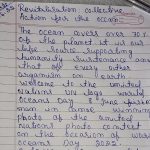 Revitalization collective
Action for the ocean
The ocean covers over 70%
of the planet. It is our
life source, supporting
humanity's sustenance and
that of every other
organism on earth
welcome to the United
Nations UN page world
Oceans Day 8th June
photo of the United
Nations photo contest
on the occasion of World
Oceans Day 2022